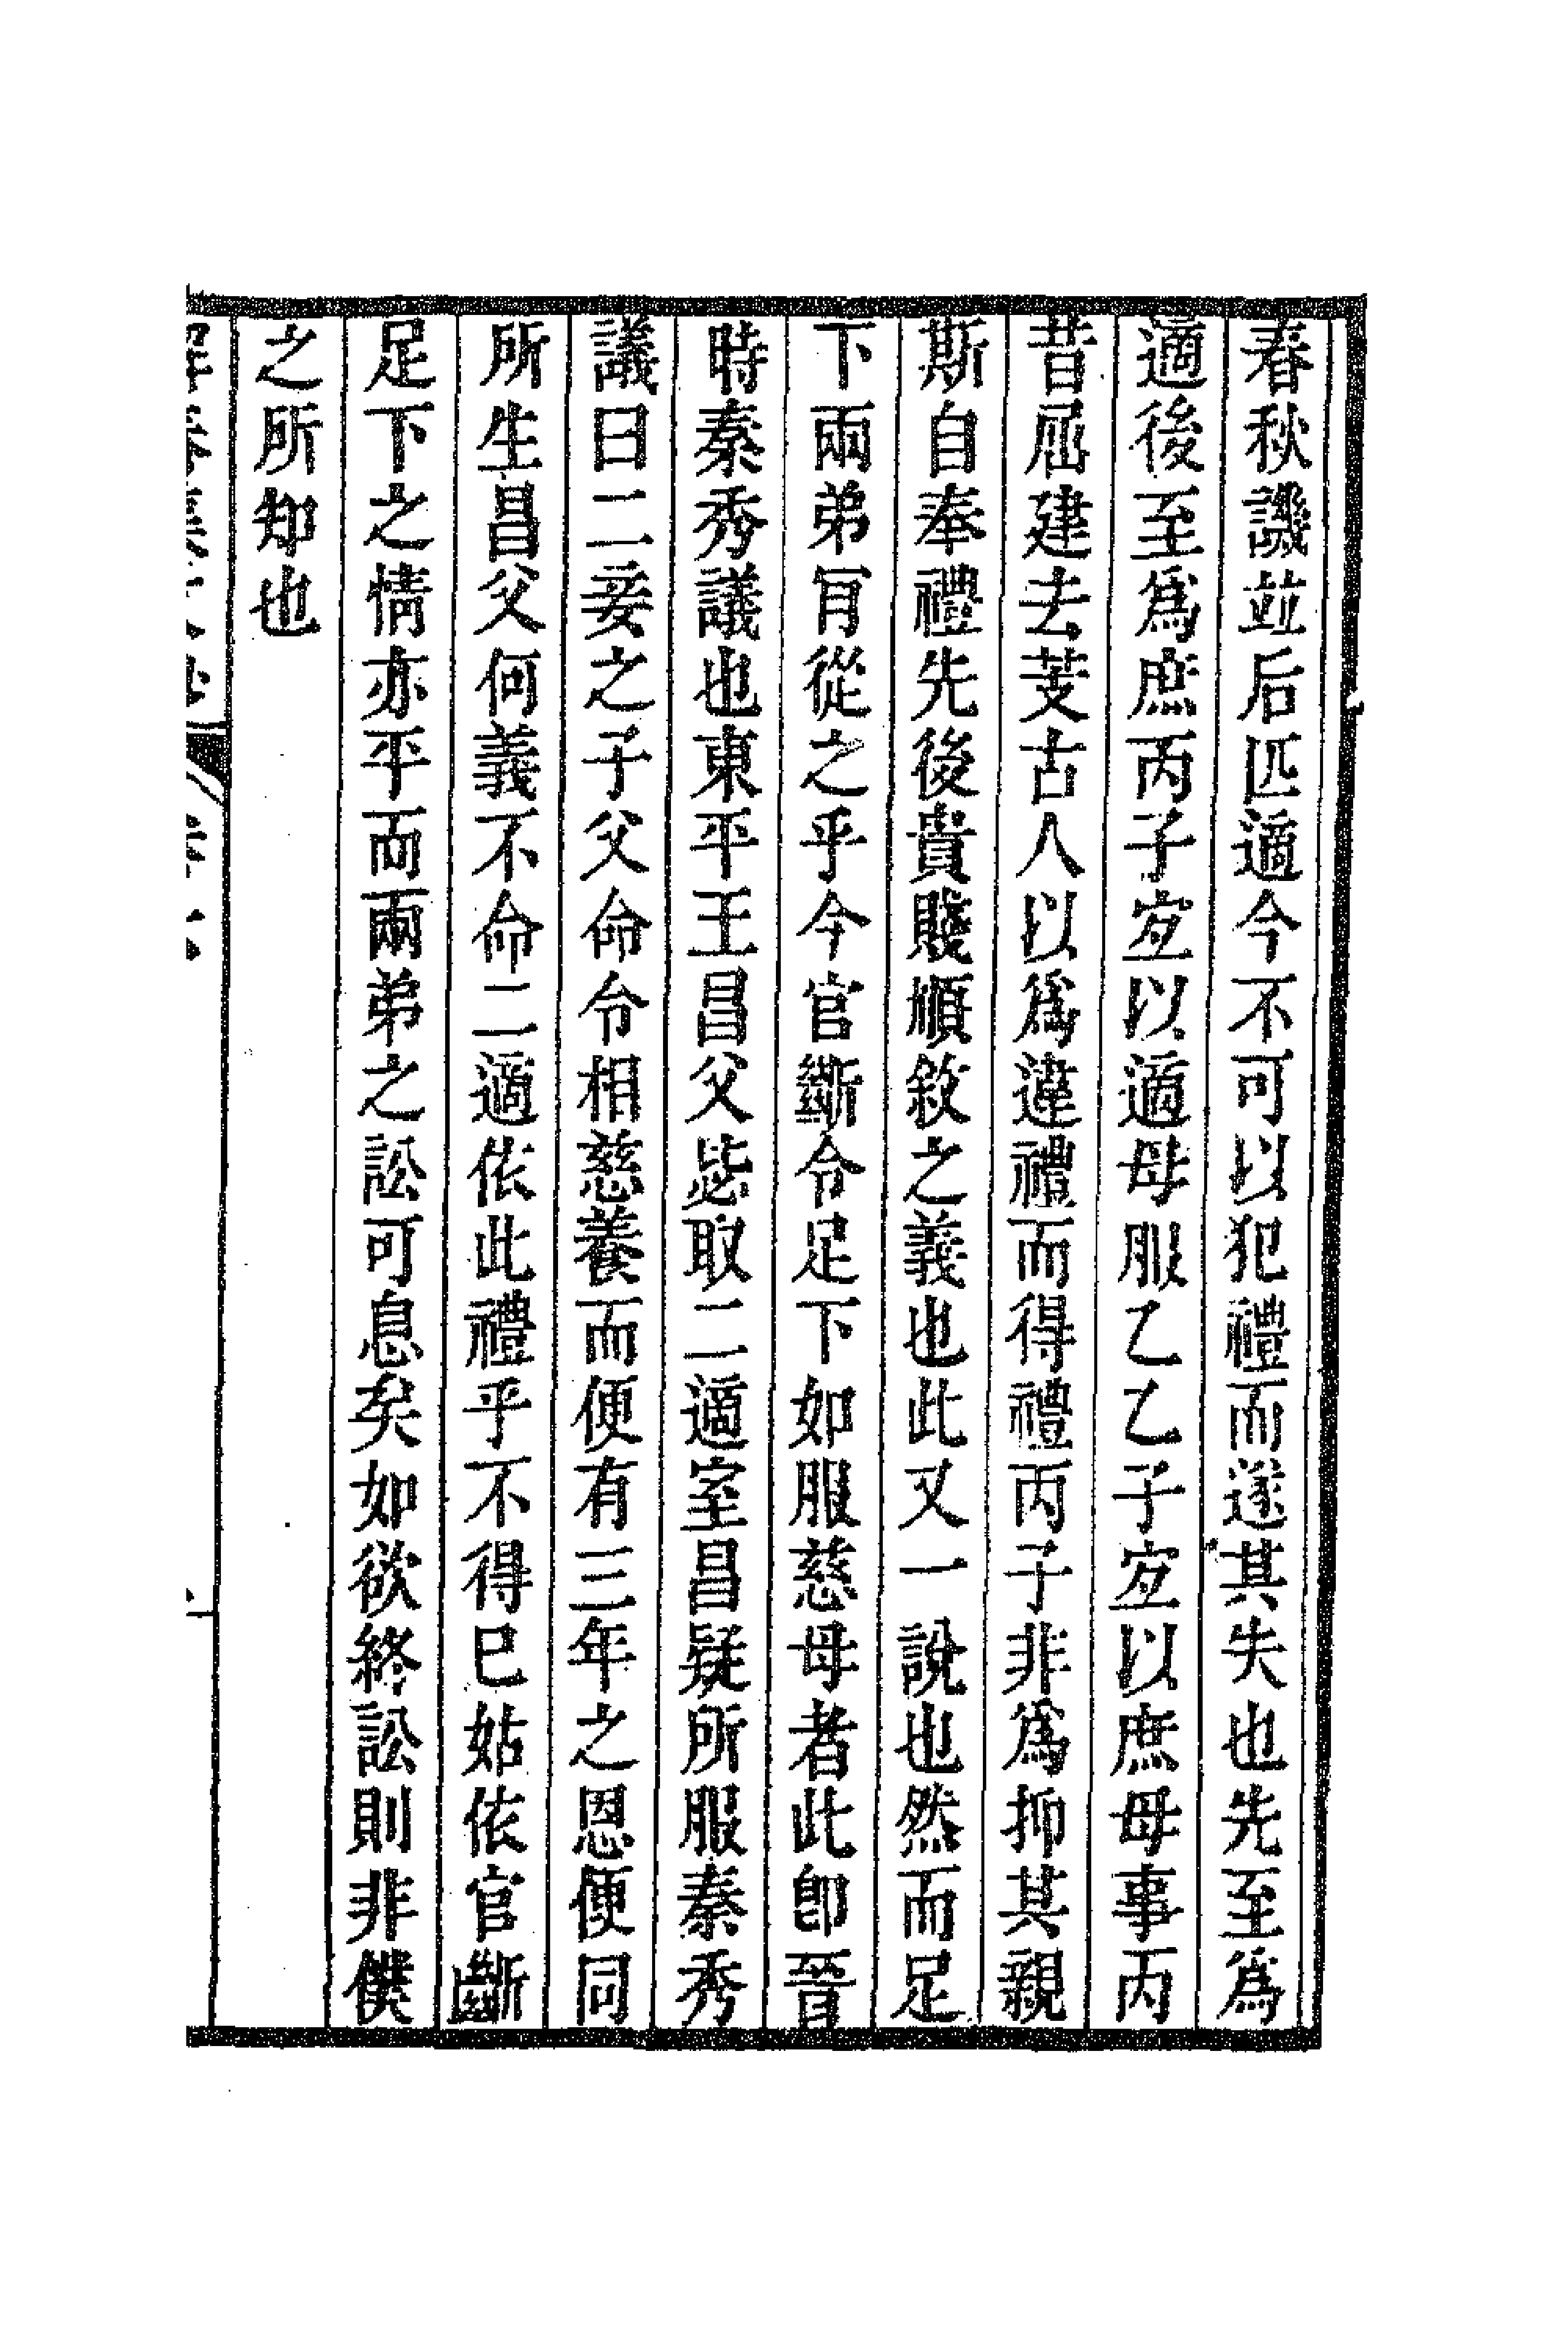 春秋譏並后匹適今不可以犯禮而遂其失也先至爲
適後至爲庶丙子宐以適母服乙乙子宐以庶母事丙
昔屈建去芰古人以爲違禮而得禮丙子非爲抑其親
斯自奉禮先後貴賤順敘之義也此又一說也然而足
下兩弟肎從之乎今官斷令足下如服慈母者此卽晉
時秦秀議也東平王昌父毖取二適室昌疑所服秦秀
議曰二妾之子父命令相慈養而便有三年之恩便同
所生昌父何義不命二適依此禮乎不得已姑依官斷
足下之情亦平而兩弟之訟可息矣如欲終訟則非僕
之所知也